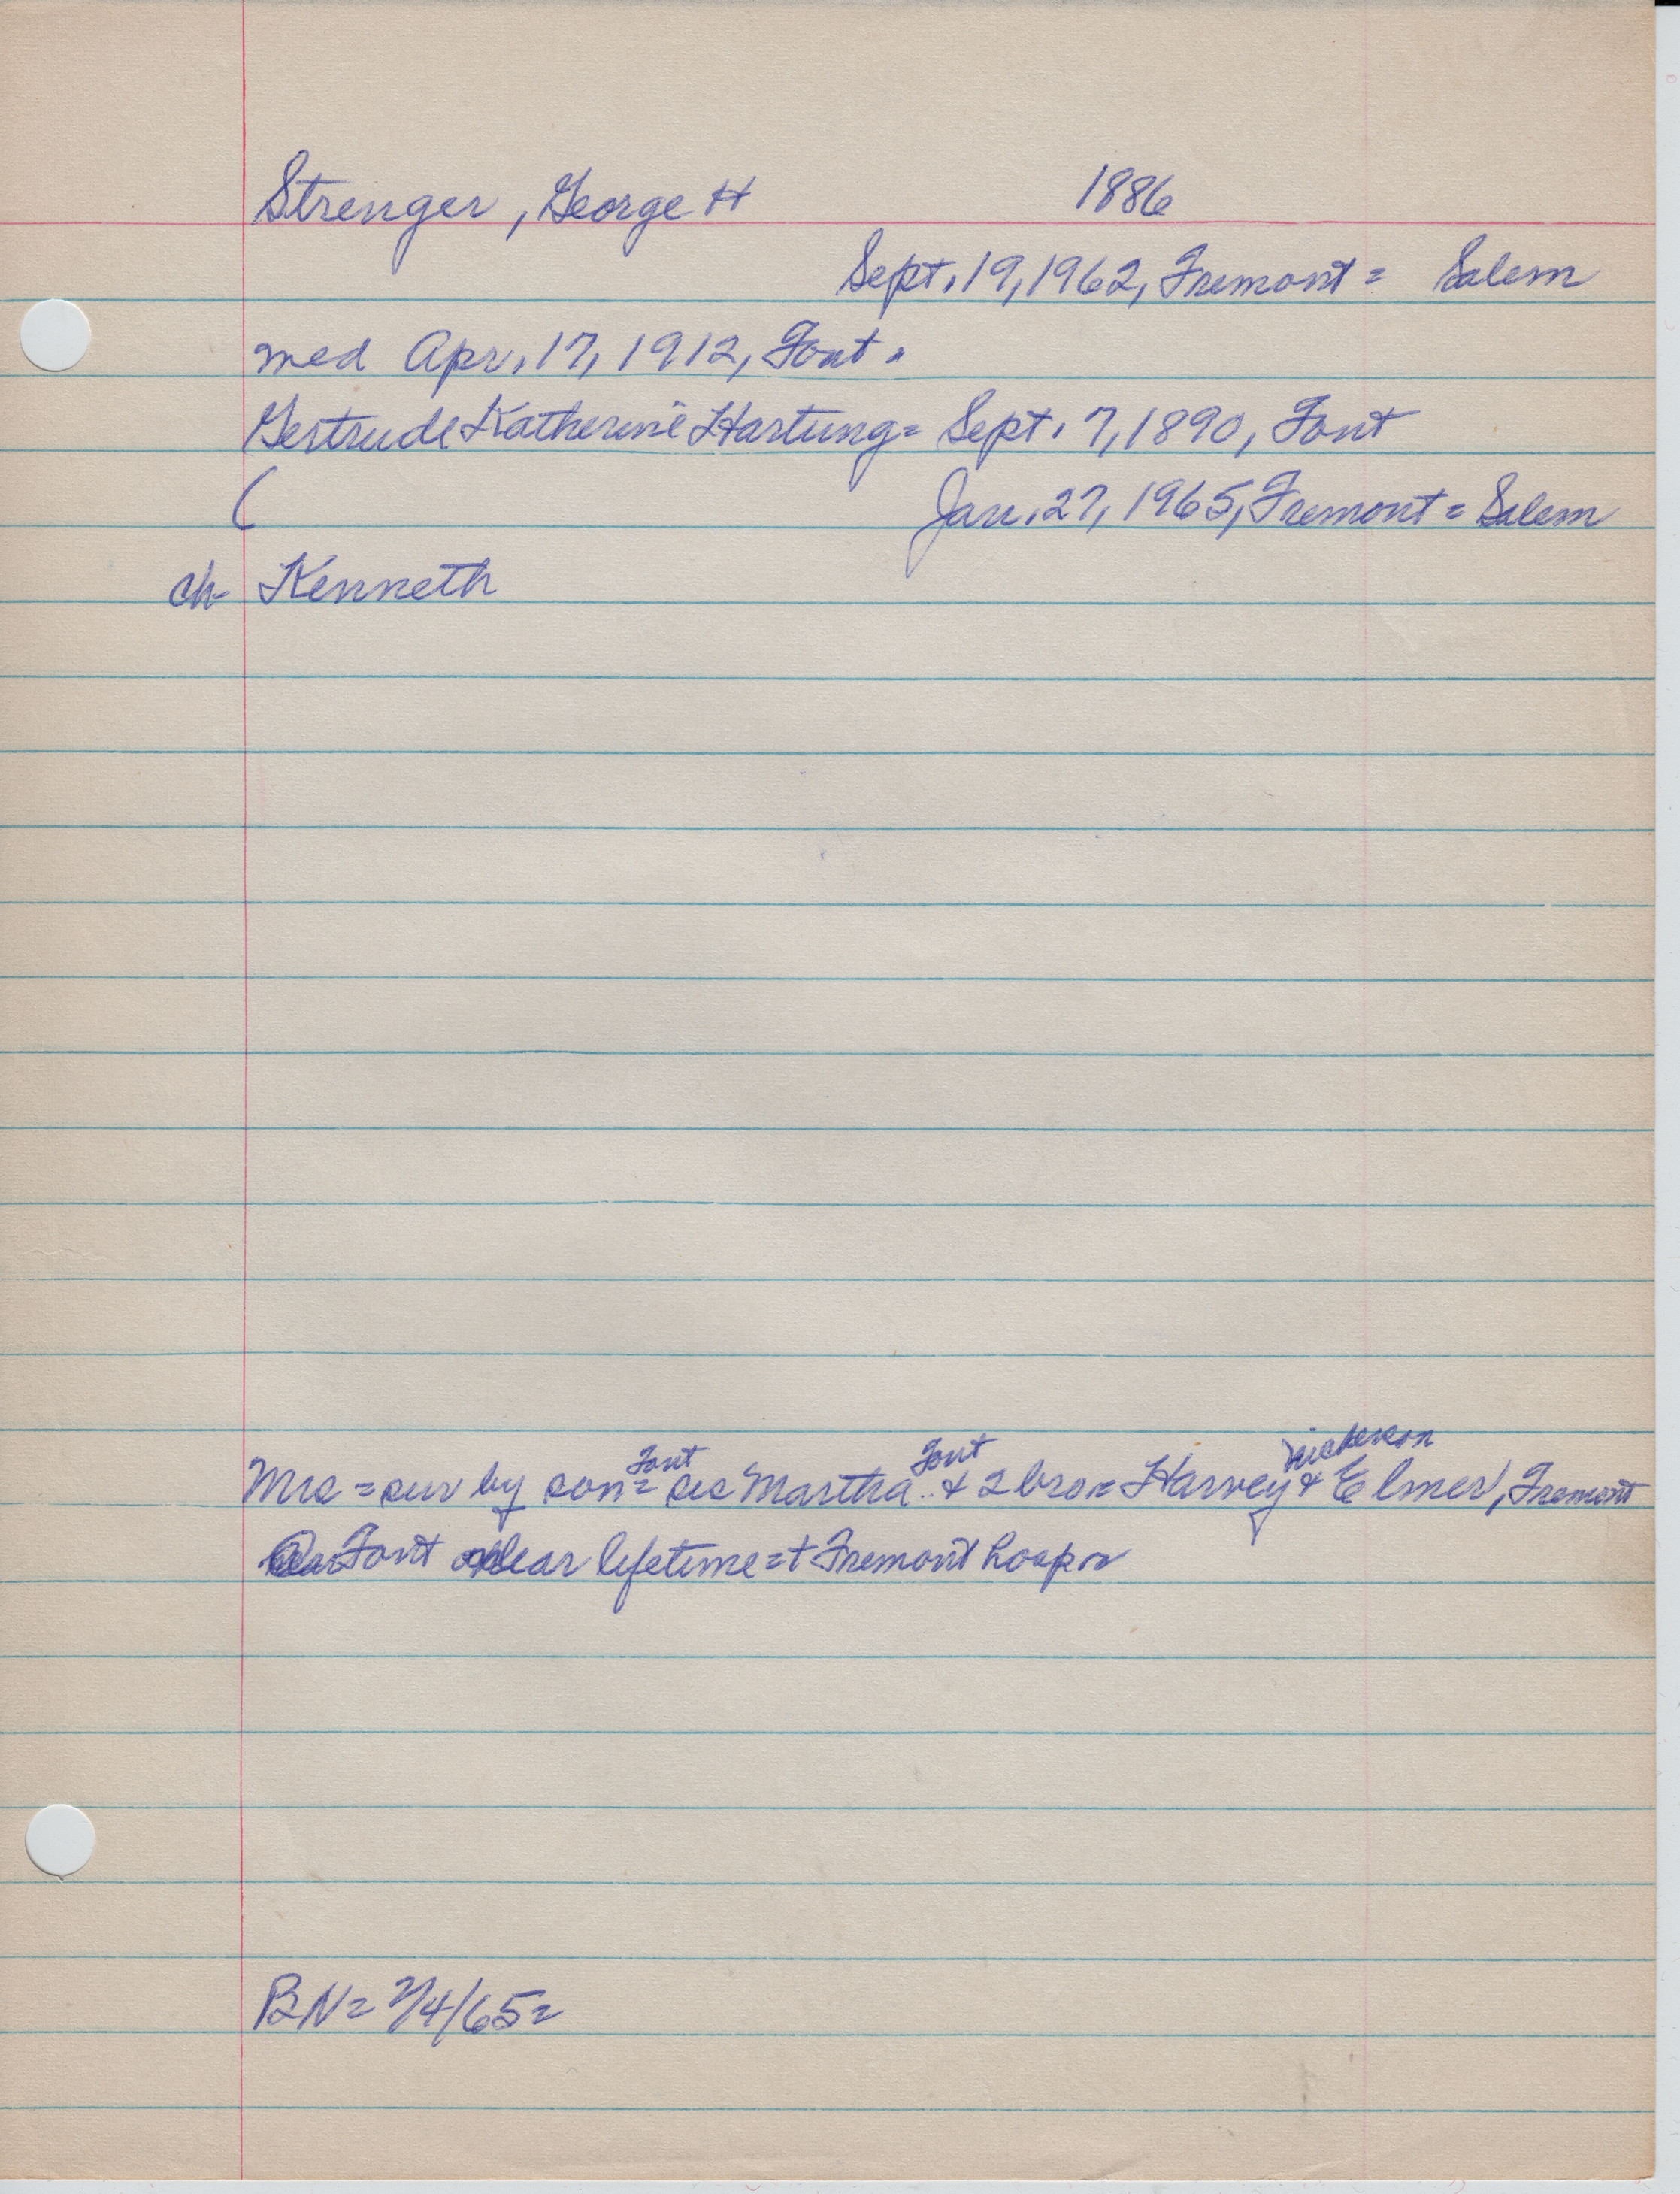 Strenger, George H 1886
Sept. 19, 1962, Fremont = Salem
med Apr. 17, 1912, Font.
Gertrude Katherine Hartung = Sept. 7, 1890, Font
( Jan. 27, 1965, Fremont = Salem
ch Kenneth
Font Font Nickerson
Mrs = sur by son = sis Martha & 2 bro = Harvey & Elmer, Fremont
Font lifetime = + Fremont hosp =
BN = 2/4/65 =